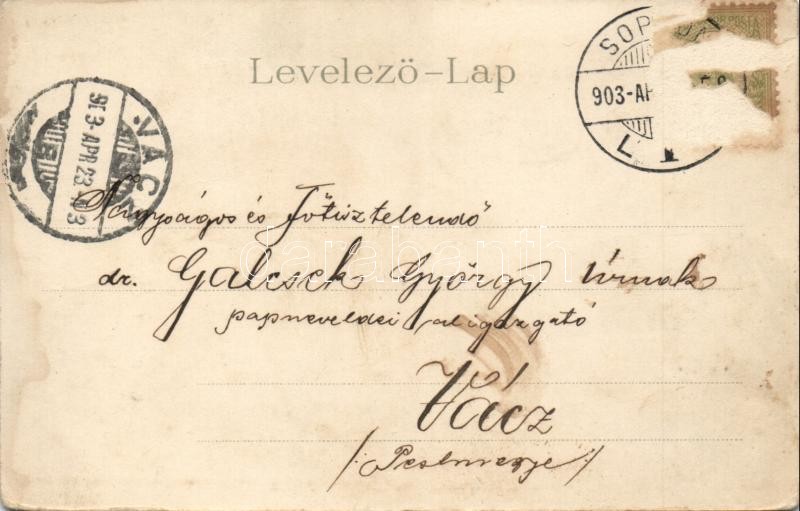 Levelező-Lap
SOPRON
903-AP
L 1
VÁCZ
913-APR 23
Nagyságos és Főtisztelendő
dr. Galcsek György úrnak
papneveldei aligazgató
Vácz
/: Pestmegye :/
darabanth